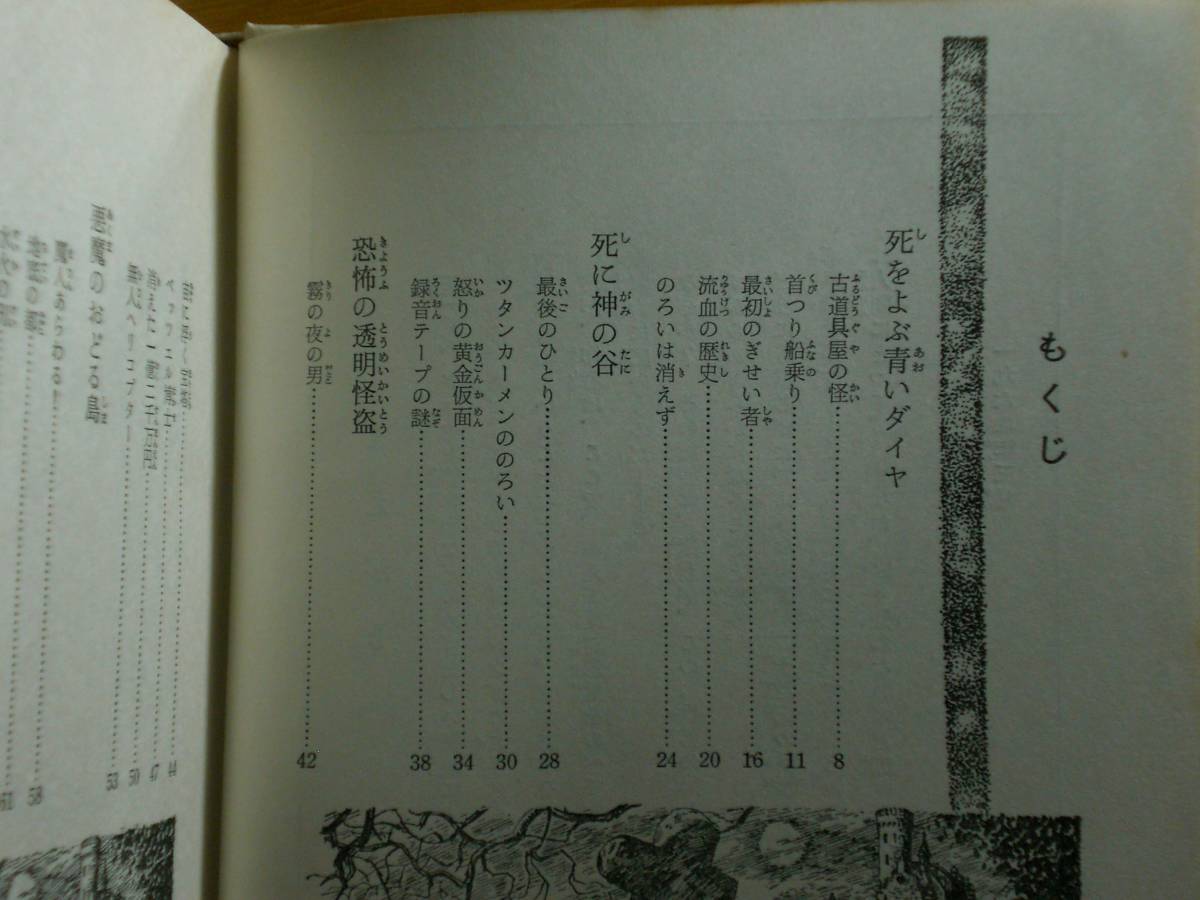 もくじ
死をよぶ青いダイヤ
古道具屋の怪……8
首つり船乗り……11
最初のぎせい者……16
流血の歴史……20
のろいは消えず……24
死に神の谷
最後のひとり……28
ツタンカーメンののろい……30
怒りの黄金仮面……34
録音テープの謎……38
恐怖の透明怪盗
霧の夜の男……42
44
47
消えた一億二千万円……50
無人ヘリコプター……53
悪魔のおどる島
魔人あらわる……58
地底の都……61